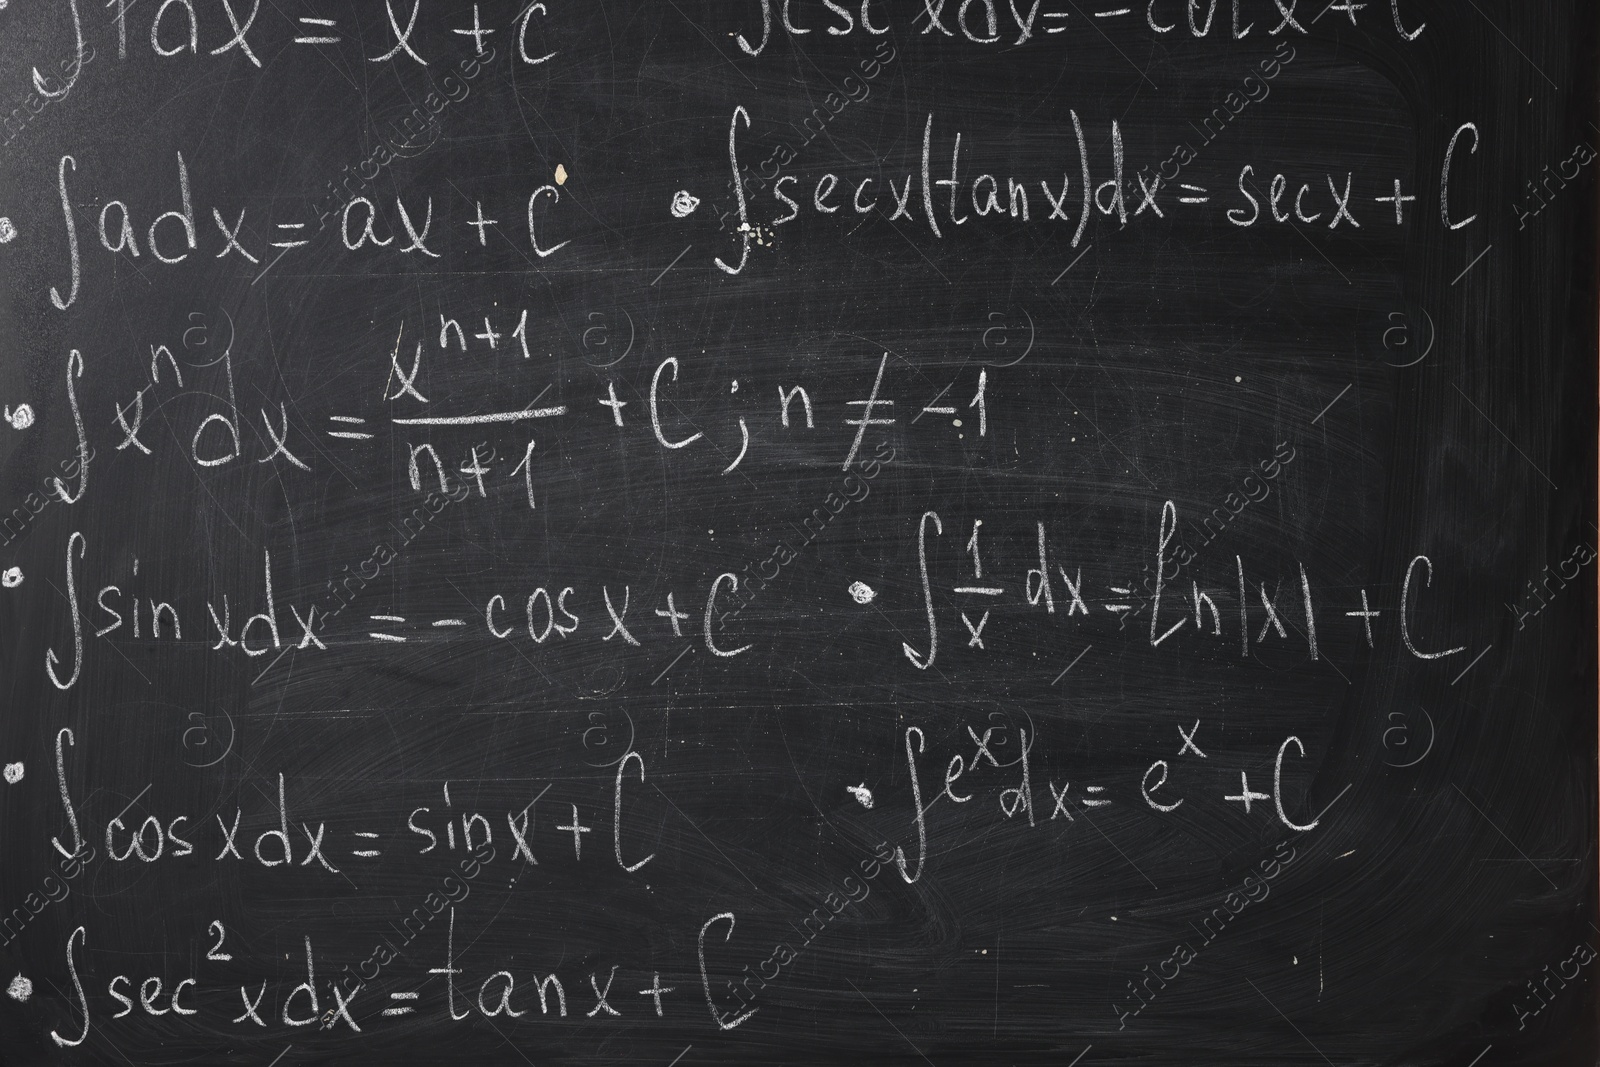 ∫1dx = x + C
∫csc²xdx = -cotx + C
∫adx = ax + C
• ∫secx(tanx)dx = secx + C
• ∫xⁿdx = xⁿ⁺¹/(n+1) + C ; n ≠ -1
• ∫sinxdx = -cosx + C
• ∫1/x dx = ln|x| + C
• ∫cosxdx = sinx + C
• ∫eˣdx = eˣ + C
• ∫sec²xdx = tanx + C
Africa Images